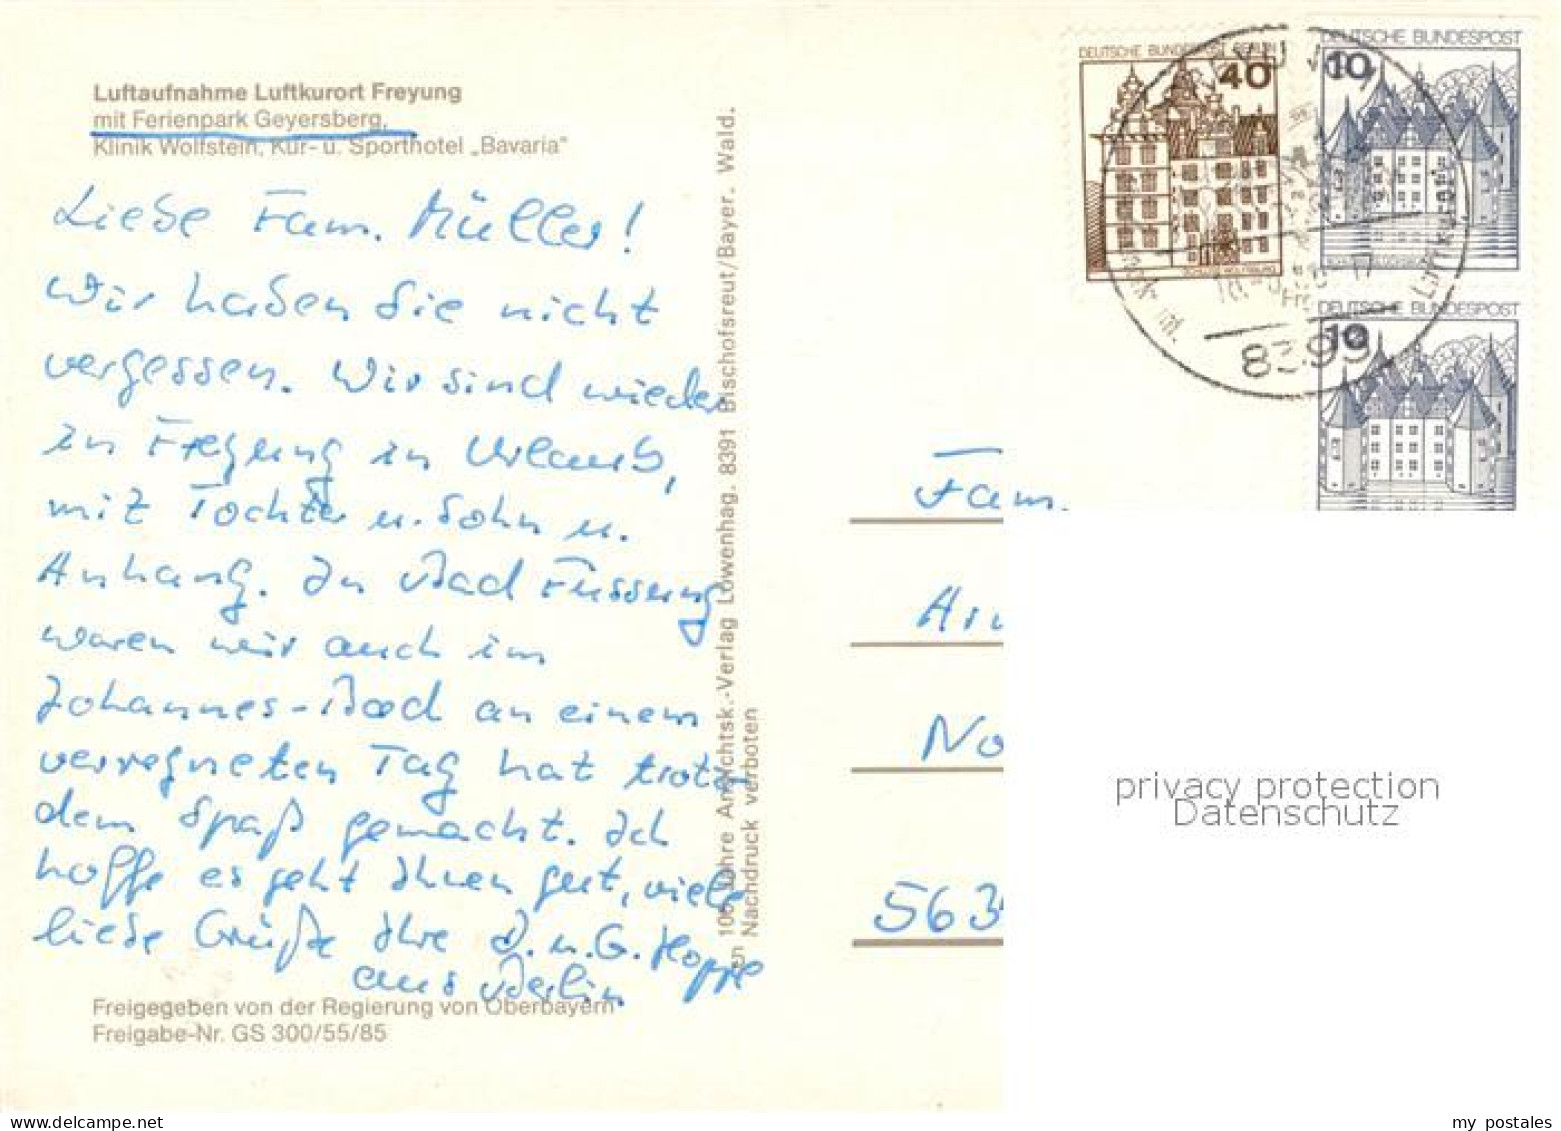 Luftaufnahme Luftkurort Freyung
mit Ferienpark Geyersberg,
Klinik Wolfstein, Kur- u. Sporthotel „Bavaria"
Liebe Fam. Müller!
Wir haben Sie nicht
vergessen. Wir sind wieder
in Freyung in Urlaub,
mit Tochter u. Sohn u.
Anhang. In Bad Füssung
waren wir auch im
Johannes-Bad an einem
verregneten Tag hat trotz-
dem Spaß gemacht. Ich
hoffe es geht Ihnen gut, viele
liebe Grüße Ihre D. u. G. Hoppe
aus Berlin
Freigegeben von der Regierung von Oberbayern
Freigabe-Nr. GS 300/55/85
Jahre Ansichtsk.-Verlag Löwenhag, 8391 Bischofsreut/Bayer. Wald.
Nachdruck verboten
DEUTSCHE BUNDESPOST BERLIN
40
DEUTSCHE BUNDESPOST
10
DEUTSCHE BUNDESPOST
10
8393
Luftkurort
Fam.
No
563
privacy protection
Datenschutz
my postales